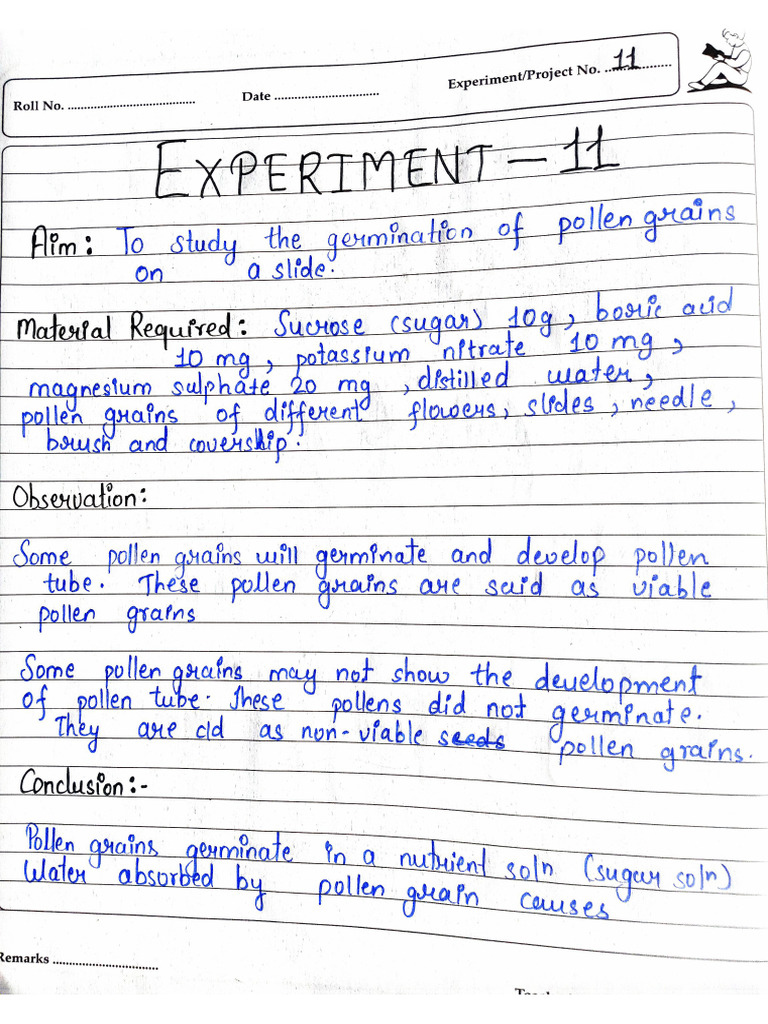 Roll No. ........................................ Date ................................. Experiment/Project No. ...11............
EXPERIMENT - 11
Aim: To study the germination of pollen grains
on a slide.
Material Required: Sucrose (sugar) 10g, boric acid
10 mg, potassium nitrate 10 mg,
magnesium sulphate 20 mg, distilled water,
pollen grains of different flowers, slides, needle,
brush and coverslip.
Observation:
Some pollen grains will germinate and develop pollen
tube. These pollen grains are said as viable
pollen grains
Some pollen grains may not show the development
of pollen tube. These pollens did not germinate.
They are cld as non-viable seeds pollen grains.
Conclusion:-
Pollen grains germinate in a nutrient soln (sugar soln)
Water absorbed by pollen grain causes
Remarks .................................